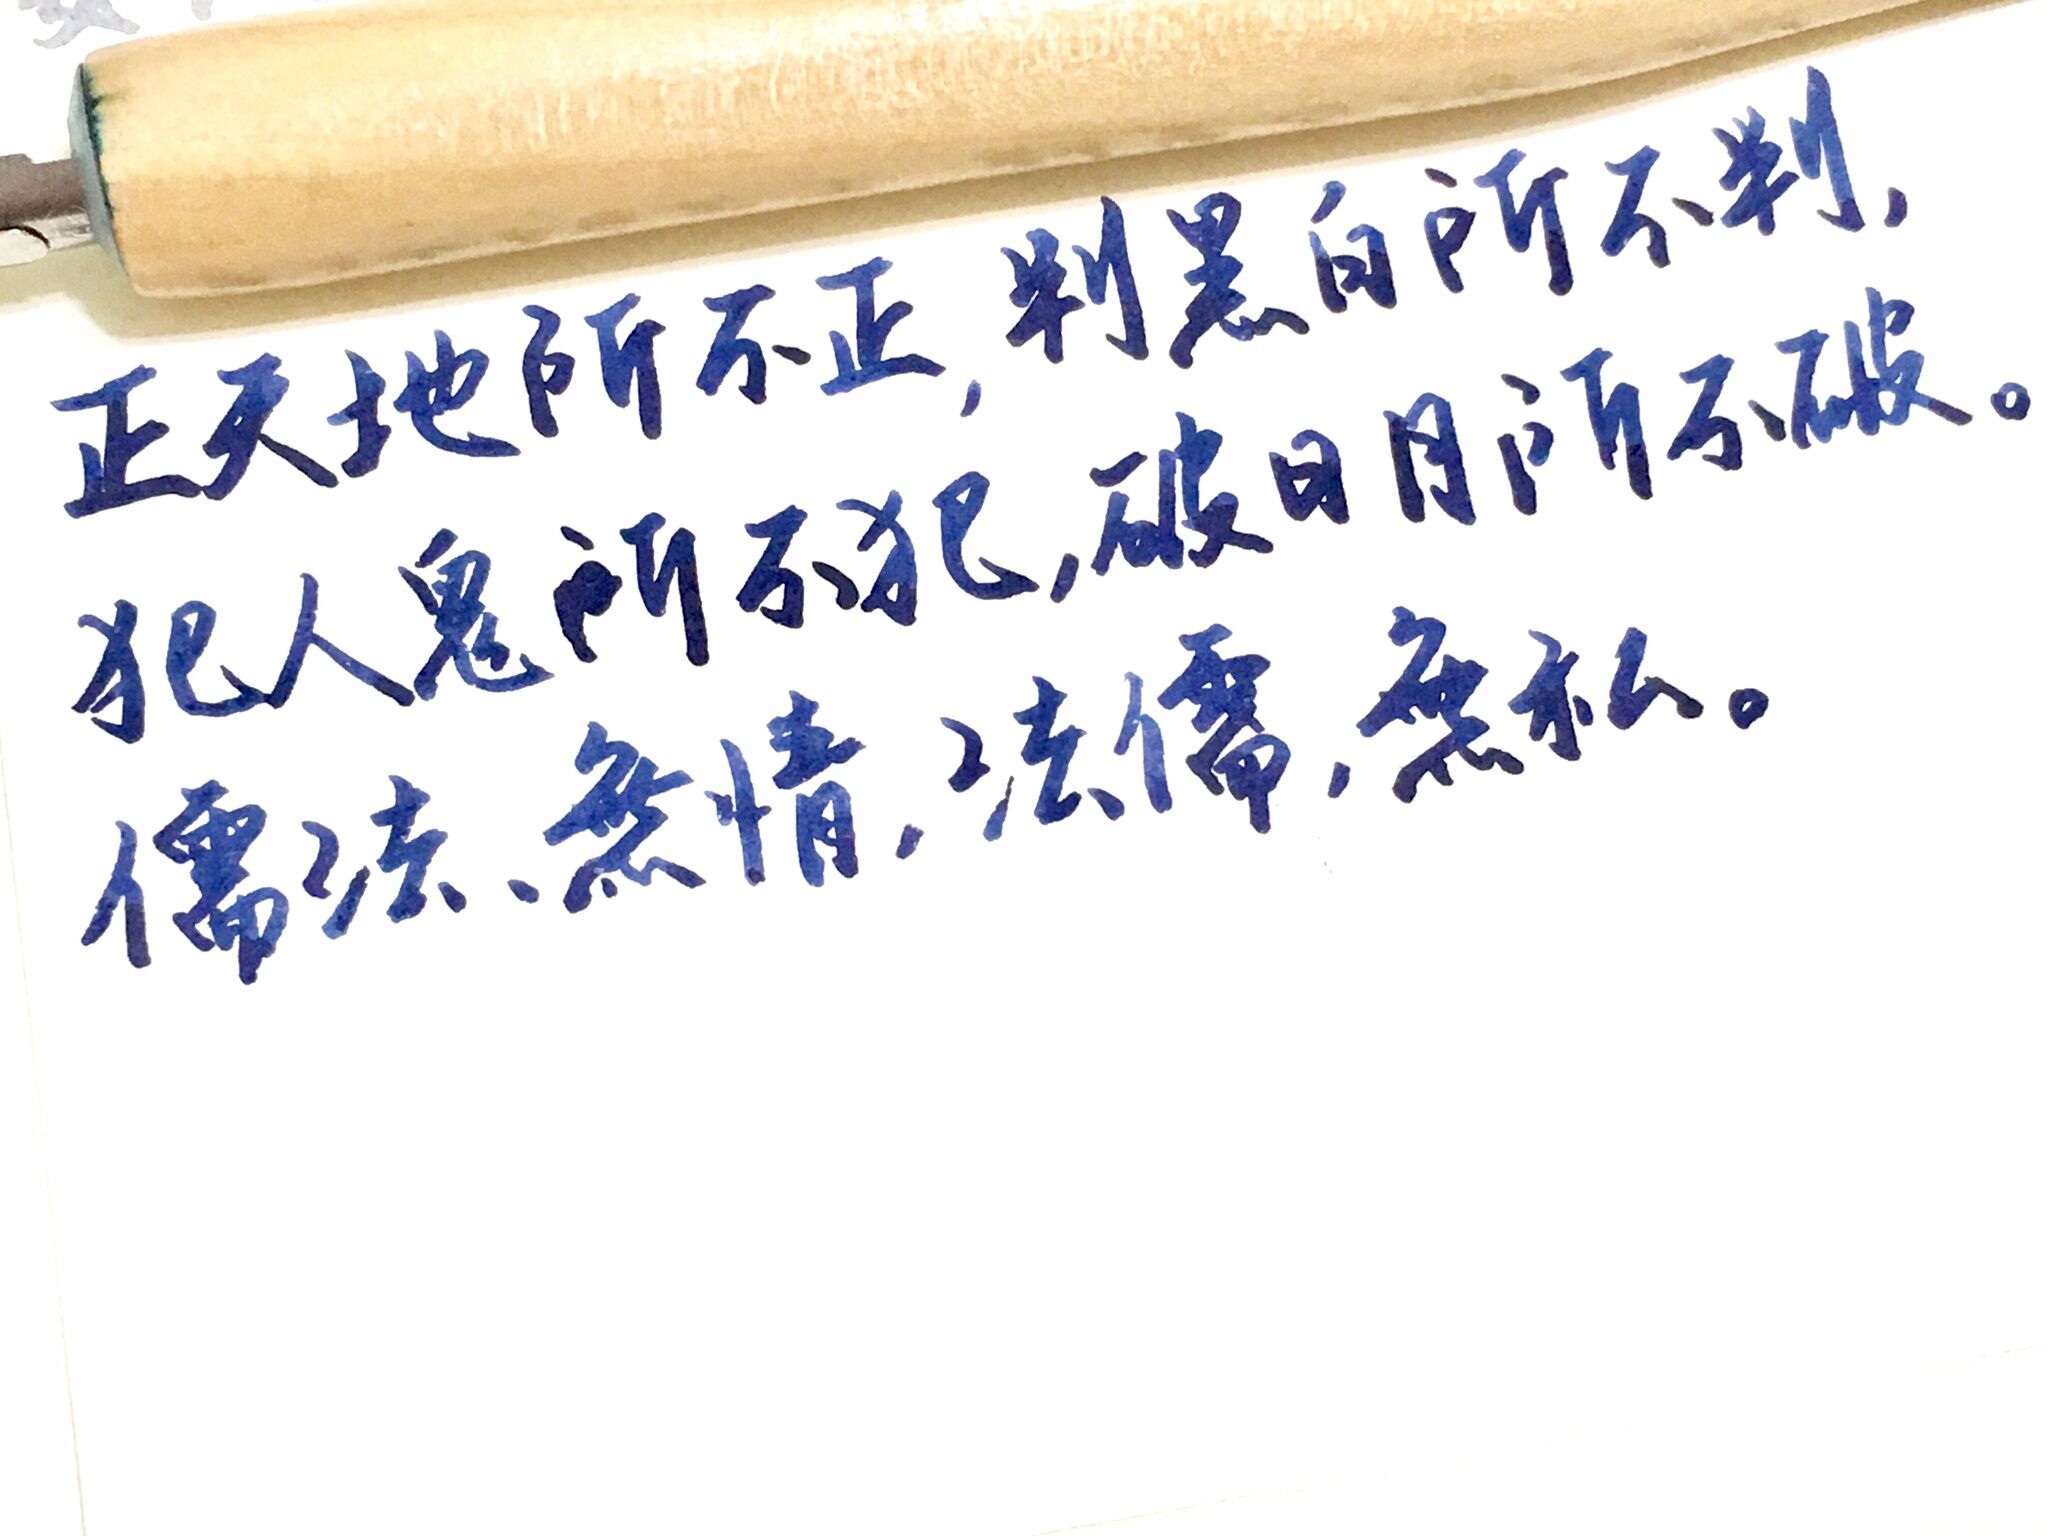 正天地所不正,判黑白所不判,
犯人鬼所不犯,破日月所不破。
儒法、無情,法儒,無私。